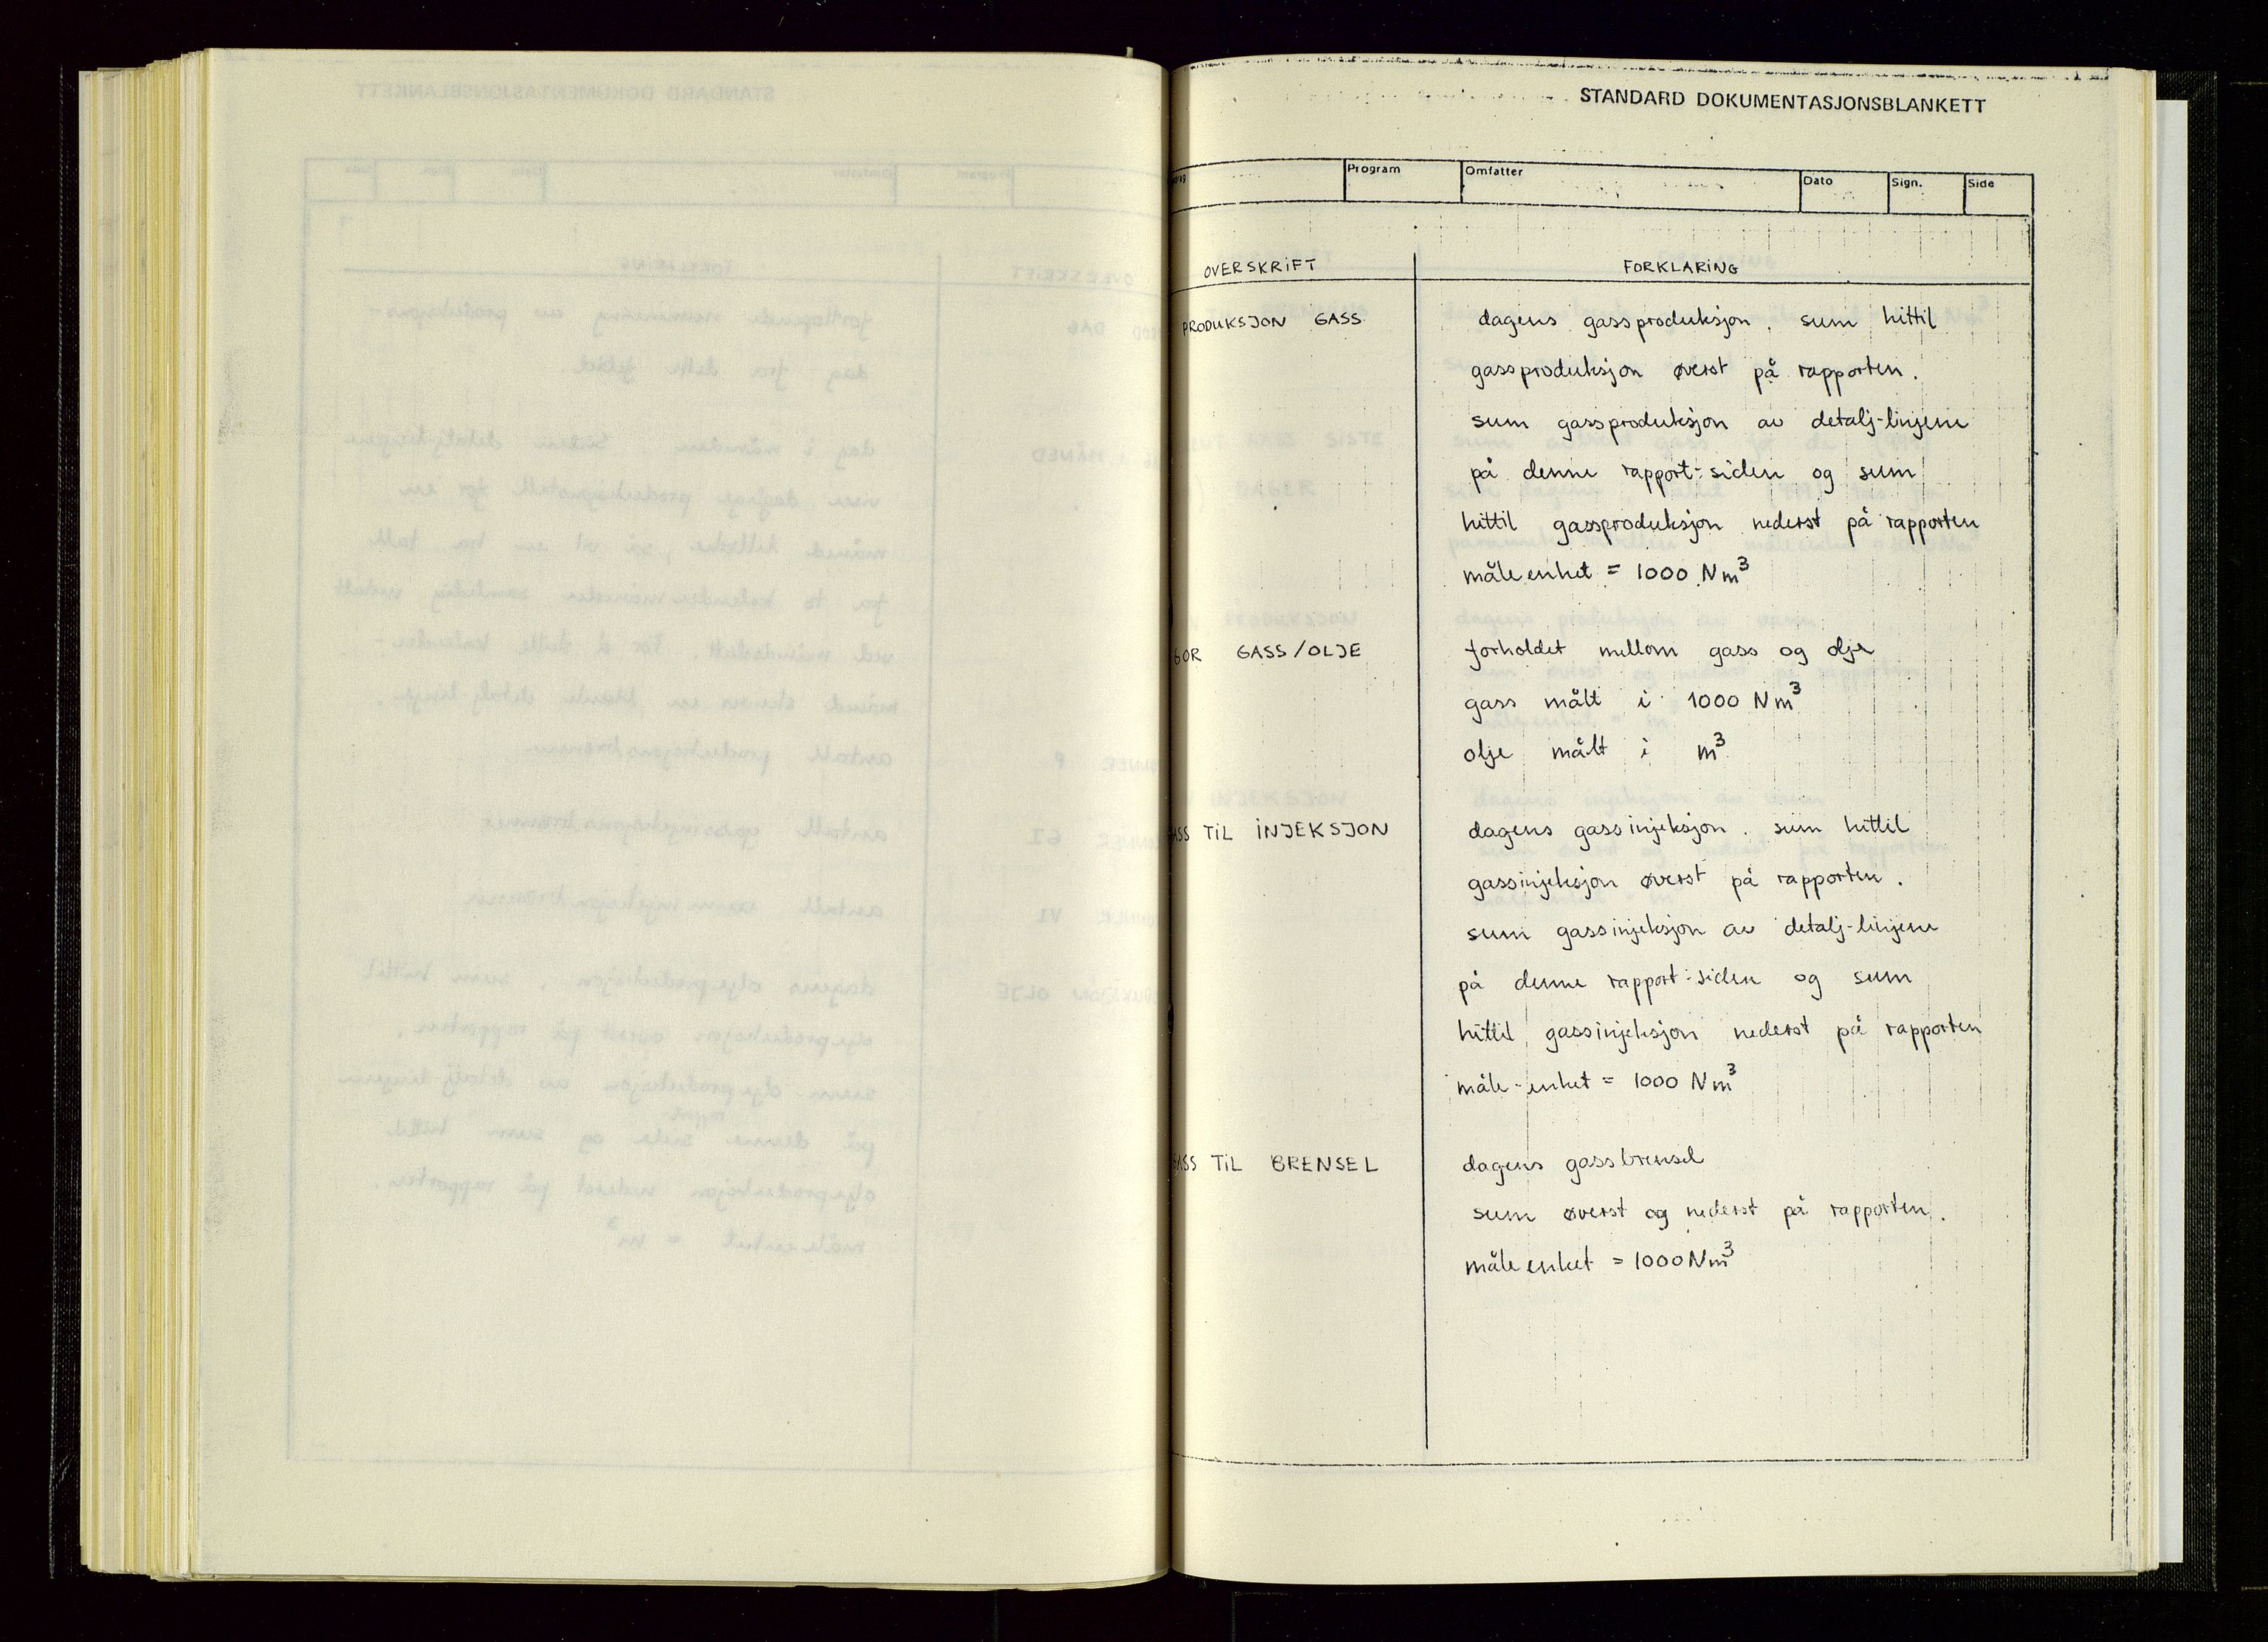 STANDARD DOKUMENTASJONSBLANKETT
Program Omfatter Dato Sign. Side
OVERSKRIFT FORKLARING
PRODUKSJON GASS dagens gassproduksjon. sum hittil
gassproduksjon øverst på rapporten.
sum gassproduksjon av detalj-linjene
på denne rapport-siden og sum
hittil gassproduksjon nederst på rapporten
måleenhet = 1000 Nm³
GOR GASS/OLJE forholdet mellom gass og olje
gass målt i 1000 Nm³
olje målt i m³
ASS TIL INJEKSJON dagens gassinjeksjon. sum hittil
gassinjeksjon øverst på rapporten.
sum gassinjeksjon av detalj-linjene
på denne rapport-siden og sum
hittil gassinjeksjon nederst på rapporten
måle-enhet = 1000 Nm³
ASS TIL BRENSEL dagens gassbrensel
sum øverst og nederst på rapporten.
måleenhet = 1000 Nm³